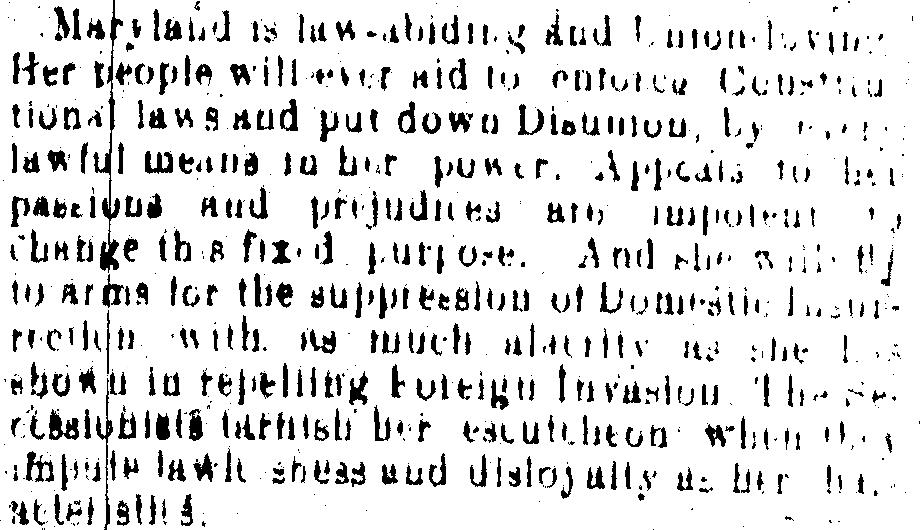 Maryland is law-abiding and Union-loving.
Her people will ever aid to enforce Constitu-
tional laws and put down Disunion, by every
lawful means in her power. Appeals to her
passions and prejudices are impotent to
change this fixed purpose. And she will fly
to arms for the suppression of Domestic Insur-
rection with as much alacrity as she has
shown in repelling Foreign Invasion. The Se-
cessionists tarnish her escutcheon when they
impute lawlessness and disloyalty as her char-
acteristics.